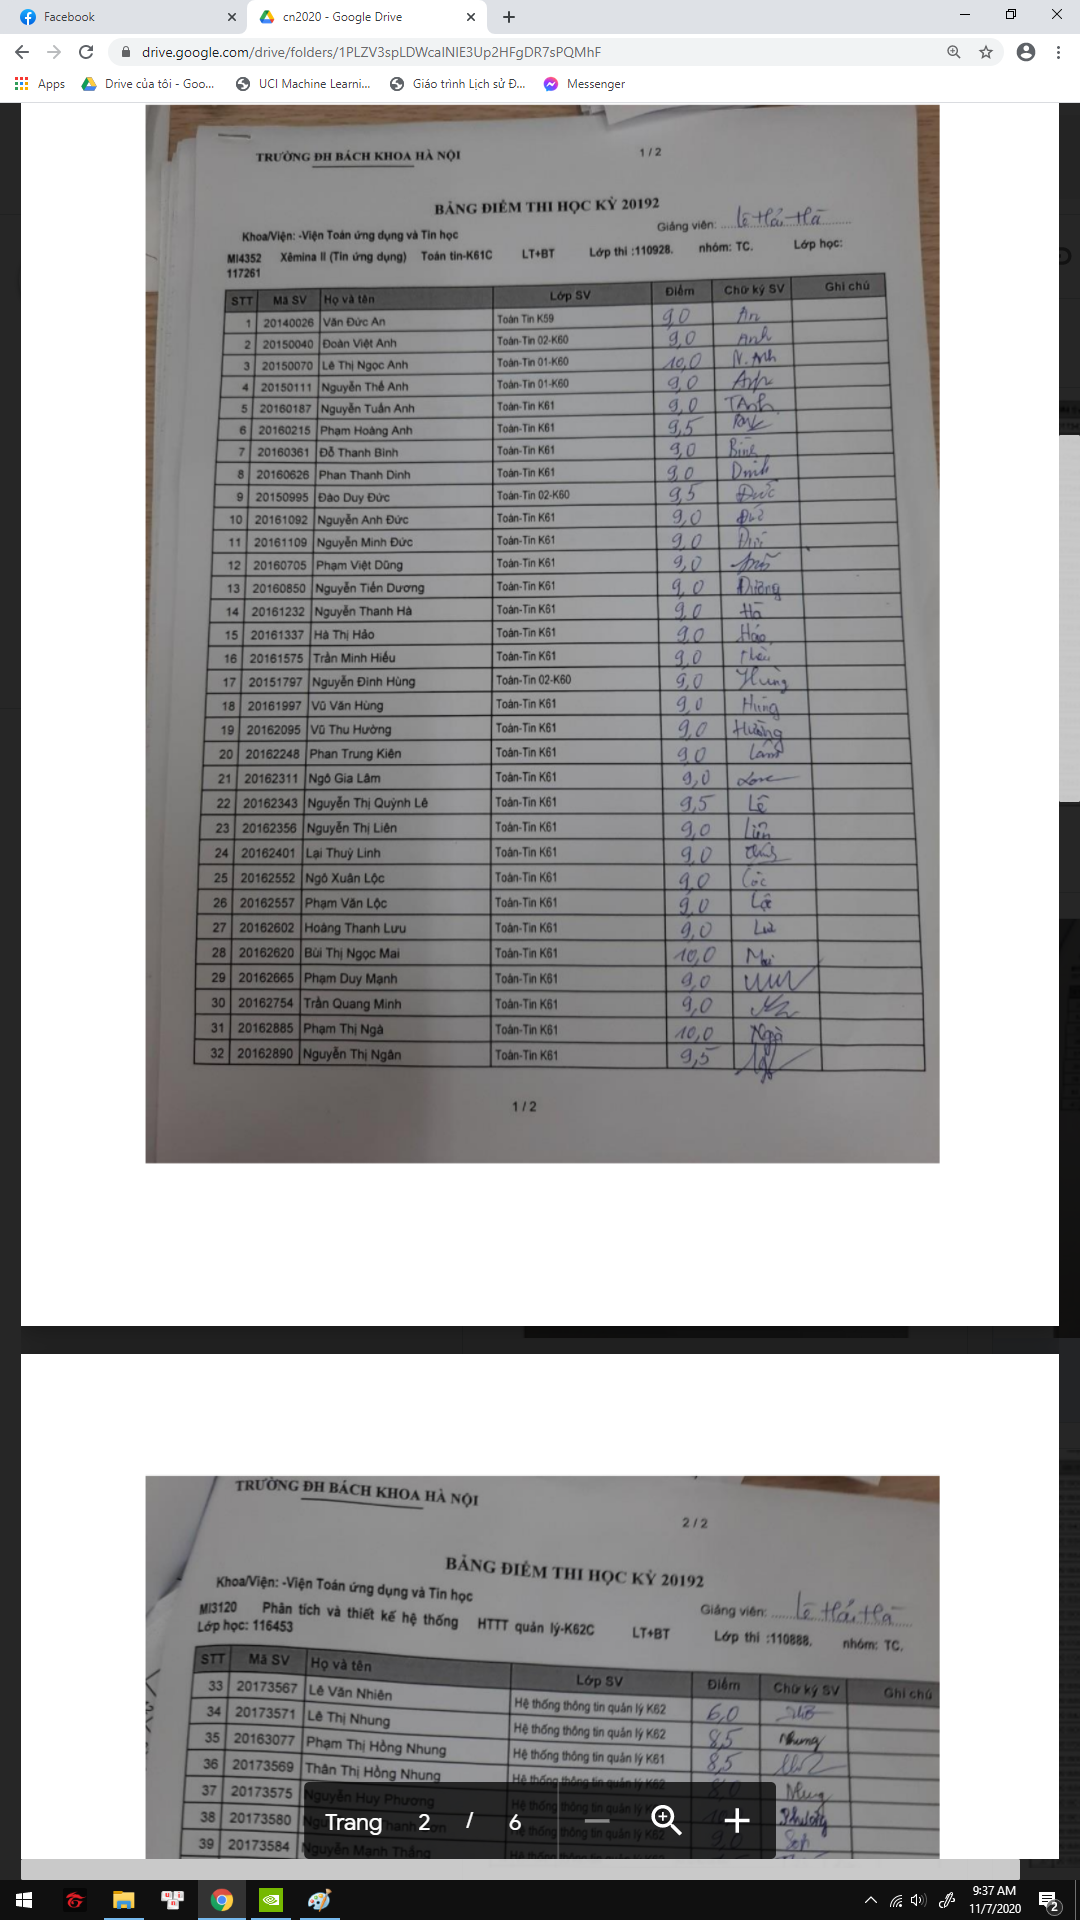 Facebook
cn2020 - Google Drive
drive.google.com/drive/folders/1PLZV3spLDWcaINIE3Up2HFgDR7sPQMhF
Apps Drive của tôi - Goo... UCI Machine Learni... Giáo trình Lịch sử Đ... Messenger
TRƯỜNG ĐH BÁCH KHOA HÀ NỘI 1 / 2
BẢNG ĐIỂM THI HỌC KỲ 20192
Khoa/Viện: -Viện Toán ứng dụng và Tin học Giảng viên: Lê Hải Hà
MI4352 Xêmina II (Tin ứng dụng) Toán tin-K61C LT+BT Lớp thi :110928. nhóm: TC. Lớp học:
117261
STT Mã SV Họ và tên Lớp SV Điểm Chữ ký SV Ghi chú
1 20140026 Văn Đức An Toán Tin K59 9,0 An
2 20150040 Đoàn Việt Anh Toán-Tin 02-K60 9,0 Anh
3 20150070 Lê Thị Ngọc Anh Toán-Tin 01-K60 10,0 N.Anh
4 20150111 Nguyễn Thế Anh Toán-Tin 01-K60 9,0 Anh
5 20160187 Nguyễn Tuấn Anh Toán-Tin K61 9,0 TAnh
6 20160215 Phạm Hoàng Anh Toán-Tin K61 9,5
7 20160361 Đỗ Thanh Bình Toán-Tin K61 9,0 Bình
8 20160626 Phan Thanh Dinh Toán-Tin K61 9,0 Dinh
9 20150995 Đào Duy Đức Toán-Tin 02-K60 9,5 Đức
10 20161092 Nguyễn Anh Đức Toán-Tin K61 9,0 Đức
11 20161109 Nguyễn Minh Đức Toán-Tin K61 9,0 Đức
12 20160705 Phạm Việt Dũng Toán-Tin K61 9,0
13 20160850 Nguyễn Tiến Dương Toán-Tin K61 9,0 Dương
14 20161232 Nguyễn Thanh Hà Toán-Tin K61 9,0 Hà
15 20161337 Hà Thị Hảo Toán-Tin K61 9,0 Hảo
16 20161575 Trần Minh Hiếu Toán-Tin K61 9,0 Hiếu
17 20151797 Nguyễn Đình Hùng Toán-Tin 02-K60 9,0 Hùng
18 20161997 Vũ Văn Hùng Toán-Tin K61 9,0 Hùng
19 20162095 Vũ Thu Hường Toán-Tin K61 9,0 Hường
20 20162248 Phan Trung Kiên Toán-Tin K61 9,0
21 20162311 Ngô Gia Lâm Toán-Tin K61 9,0
22 20162343 Nguyễn Thị Quỳnh Lê Toán-Tin K61 9,5 Lê
23 20162356 Nguyễn Thị Liên Toán-Tin K61 9,0 Liên
24 20162401 Lại Thuỳ Linh Toán-Tin K61 9,0
25 20162552 Ngô Xuân Lộc Toán-Tin K61 9,0 Lộc
26 20162557 Phạm Văn Lộc Toán-Tin K61 9,0 Lộc
27 20162602 Hoàng Thanh Lưu Toán-Tin K61 9,0 Lưu
28 20162620 Bùi Thị Ngọc Mai Toán-Tin K61 10,0 Mai
29 20162665 Phạm Duy Mạnh Toán-Tin K61 9,0
30 20162754 Trần Quang Minh Toán-Tin K61 9,0
31 20162885 Phạm Thị Ngà Toán-Tin K61 10,0 Ngà
32 20162890 Nguyễn Thị Ngân Toán-Tin K61 9,5
1 / 2
TRƯỜNG ĐH BÁCH KHOA HÀ NỘI
2 / 2
BẢNG ĐIỂM THI HỌC KỲ 20192
Khoa/Viện: -Viện Toán ứng dụng và Tin học Giảng viên: Lê Hải Hà
MI3120 Phân tích và thiết kế hệ thống HTTT quản lý-K62C LT+BT Lớp thi :110888. nhóm: TC.
Lớp học: 116453
STT Mã SV Họ và tên Lớp SV Điểm Chữ ký SV Ghi chú
33 20173567 Lê Văn Nhiên Hệ thống thông tin quản lý K62 6,0
34 20173571 Lê Thị Nhung Hệ thống thông tin quản lý K62 8,5 Nhung
35 20163077 Phạm Thị Hồng Nhung Hệ thống thông tin quản lý K61 8,5
36 20173569 Thân Thị Hồng Nhung Hệ thống thông tin quản lý K62 8,0 Nhung
37 20173575 Nguyễn Huy Phương Hệ thống thông tin quản lý K62 Phương
38 20173580 Hệ thống thông tin quản lý K62 9,0 Sơn
39 20173584 Nguyễn Mạnh Thắng
Trang 2 / 6
9:37 AM
11/7/2020
2